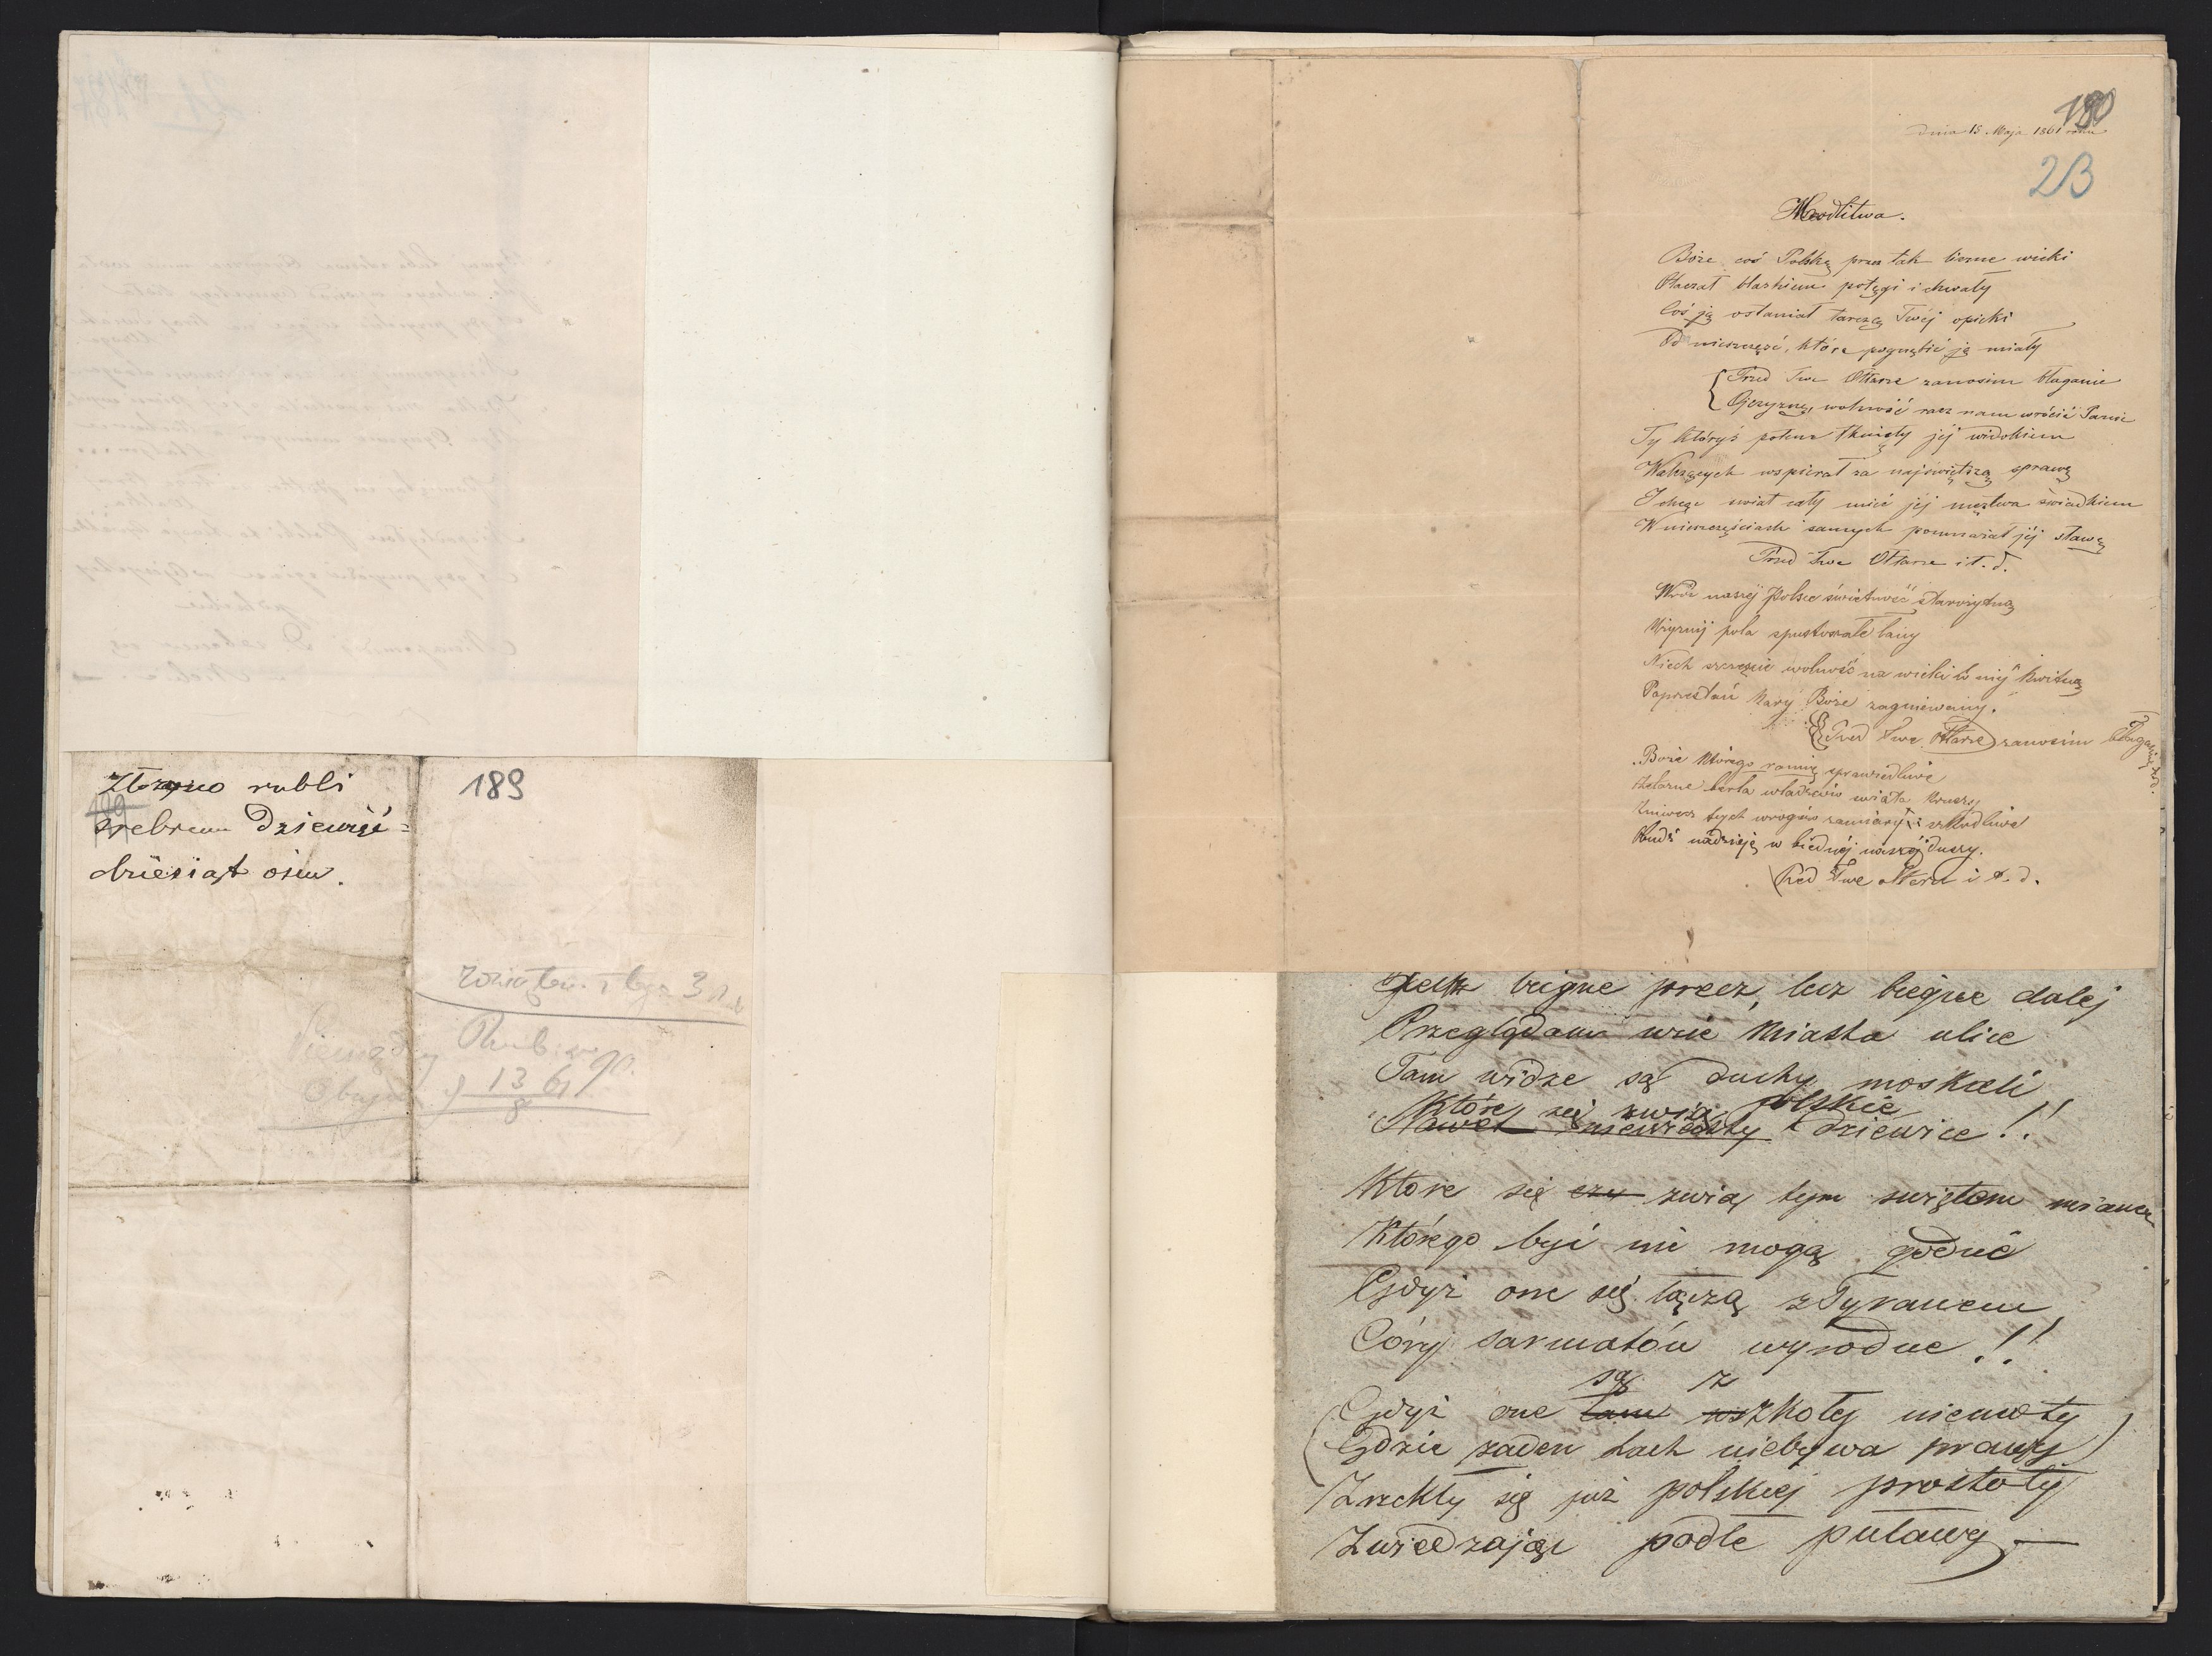 Złożono rubli
189
srebrem Dziewięć=
dziesiąt ośm.
189
3
Pieniędzy Rub. sr. 90.
13 61
8
190
Dnia 15 Maja 1861 roku
23
Modlitwa.
Boże coś Polskę przez tak liczne wieki
Otaczał blaskiem potęgi i chwały
Coś ją osłaniał tarczą Twéj opieki
Od nieszczęść, które pognębić ją miały
Przed Twe Ołtarze zanosim błaganie
Ojczyznę, wolność racz nam wrócić Panie
Ty któryś potem tknięty jéj widokiem
Walczących wspierał za najświętszą sprawę
I chcąc świat cały mieć jéj męztwa świadkiem
W nieszczęściach samych pomnażał jéj sławę
Przed Twe Ołtarze i t. d.
Wróć naszéj Polsce świetność starożytną
Użyźnij pola spustoszałe łany
Niech szczęcie wolność na wieki w niéj kwitną
Poprzestań kary Boże zagniewany.
Przed Twe Ołtarze zanosim błaganie itd.
Boże którego ramię sprawiedliwe
Żelazne berła władzców świata kruszy
Zniwecz tych wrogów zamiary szkodliwe
Obudź nadzieję w biednéj naszéj duszy.
Przed Twe ołtarze i t. d.
biegne precz, lecz biegne dalej
Przeglądam wsie Miasta ulice
Tam widze są duchy moskali
Które się zwią polskie
Nawet niewiasty dziewice!!
Które się czy zwią tym swiętem mianem
Którego być nie mogą godne
Gdyż one się łączą z Tyranem
Córy sarmatów wyrodne!!
są z
(Gdyż one tam w szkoły niemoty
Gdzie żaden duch niebywa prawy)
Zrzekły się już polskiej prostoty
Zwiedzając podłe puławy —